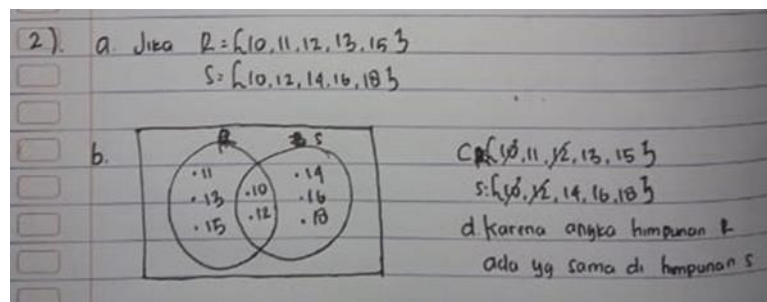 2). a. Jika R = {10, 11, 12, 13, 15}
S = {10, 12, 14, 16, 18}
b.
R S
. 11
. 13
. 15
. 10
. 12
. 14
. 16
. 18
c. {10, 11, 12, 13, 15}
S : {10, 12, 14, 16, 18}
d. Karena angka himpunan R
ada yg sama di himpunan S